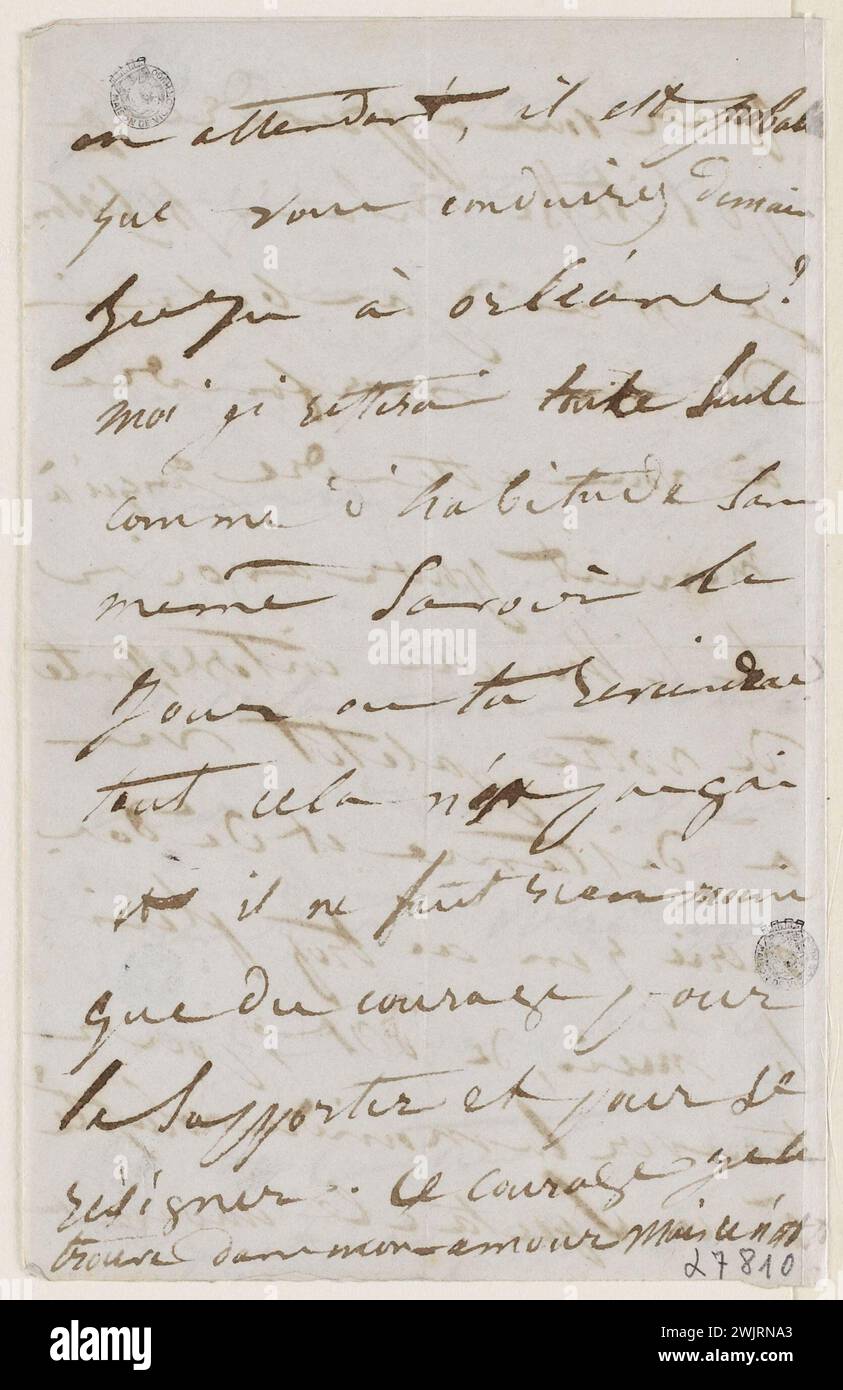 en attendant, il est probable
que vous conduirez demain
jusqu'à orléans?
moi j'y resterai toute seule
comme d'habitude sans
même savoir le
jour ou tu reviendras
tout cela n'est pas gai
et il ne faut rien moins
que du courage pour
le supporter et pour se
résigner. Ce courage je le
trouve dans mon amour mais ce n'est
27810
alamy
Image ID: 2WJRNA3
www.alamy.com